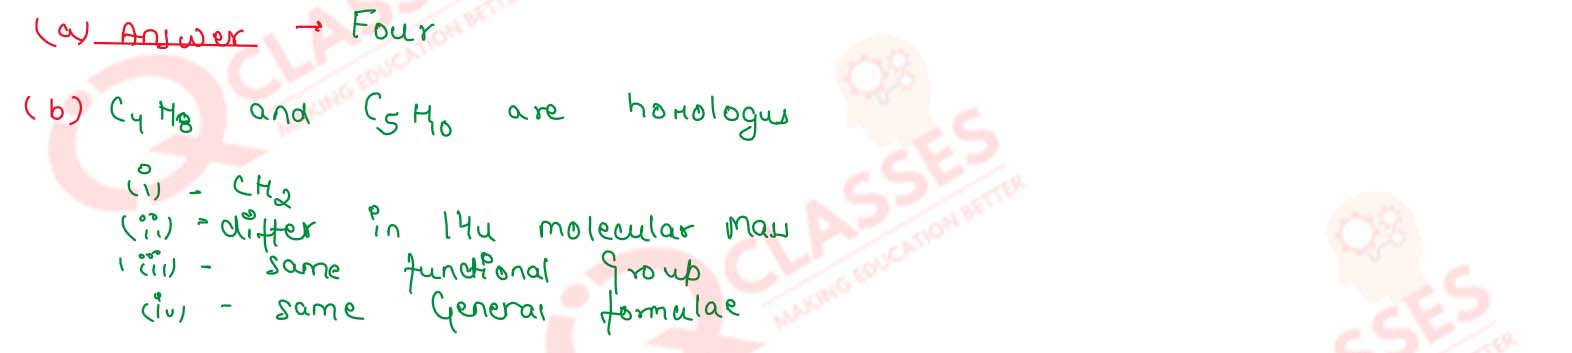 (a) Answer → Four
(b) C4H8 and C5H10 are homologus
(i) - CH2
(ii) - differ in 14u molecular Mass
(iii) - same functional Group
(iv) - same General formulae
CLASSES
MAKING EDUCATION BETTER
CLASSES
MAKING EDUCATION BETTER
SSES
TTER